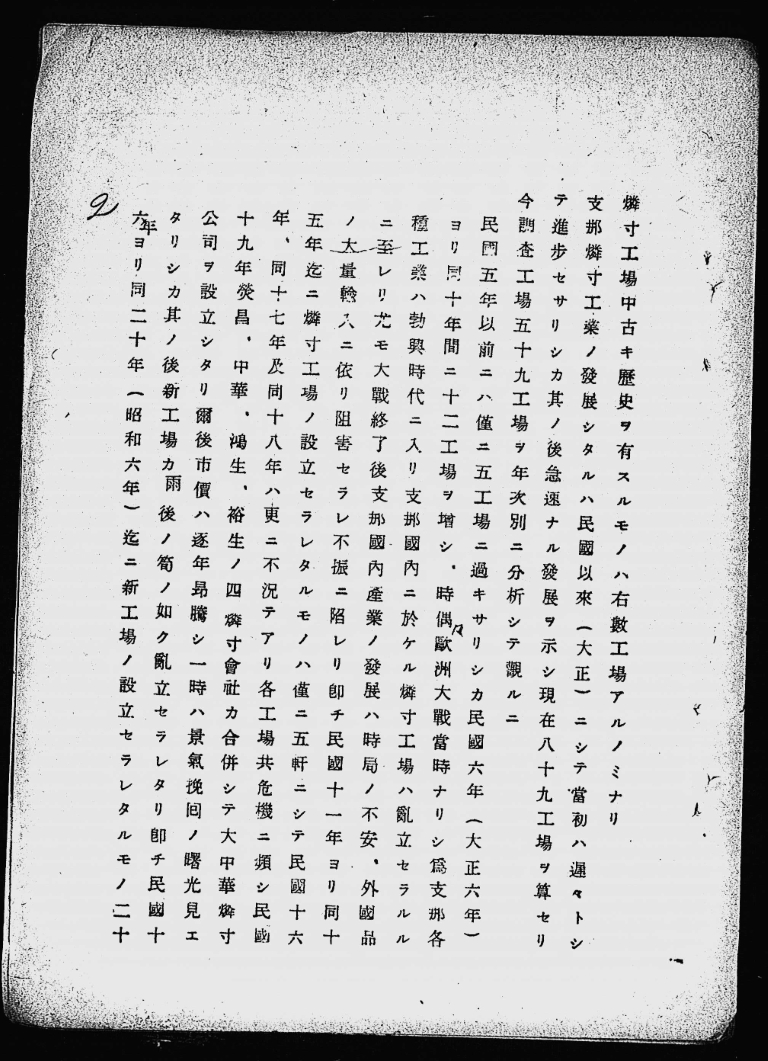 燐寸工場中古キ歷史ヲ有スルモノハ右數工場アルノミナリ
支那燐寸工業ノ發展シタルハ民國以來(大正)ニシテ當初ハ遲々トシ
テ進步セサリシカ其ノ後急速ナル發展ヲ示シ現在八十九工場ヲ算セリ
今調査工場五十九工場ヲ年次別ニ分析シテ觀ルニ
民國五年以前ニハ僅ニ五工場ニ過キサリシカ民國六年(大正六年)
ヨリ同十年間ニ十二工場ヲ增シ、時偶々歐洲大戰當時ナリシ爲支那各
種工業ハ勃興時代ニ入リ支那國內ニ於ケル燐寸工場ハ亂立セラルル
ニ至レリ尤モ大戰終了後支那國內產業ノ發展ハ時局ノ不安、外國品
ノ大量輸入ニ依リ阻害セラレ不振ニ陷レリ卽チ民國十一年ヨリ同十
五年迄ニ燐寸工場ノ設立セラレタルモノハ僅ニ五軒ニシテ民國十六
年、同十七年及同十八年ハ更ニ不況テアリ各工場共危機ニ頻シ民國
十九年熒昌、中華、鴻生、裕生ノ四燐寸會社カ合併シテ大中華燐寸
公司ヲ設立シタリ爾後市價ハ逐年昂騰シ一時ハ景氣挽回ノ曙光見エ
タリシカ其ノ後新工場カ雨後ノ筍ノ如ク亂立セラレタリ卽チ民國十
六年ヨリ同二十年(昭和六年)迄ニ新工場ノ設立セラレタルモノ二十
2